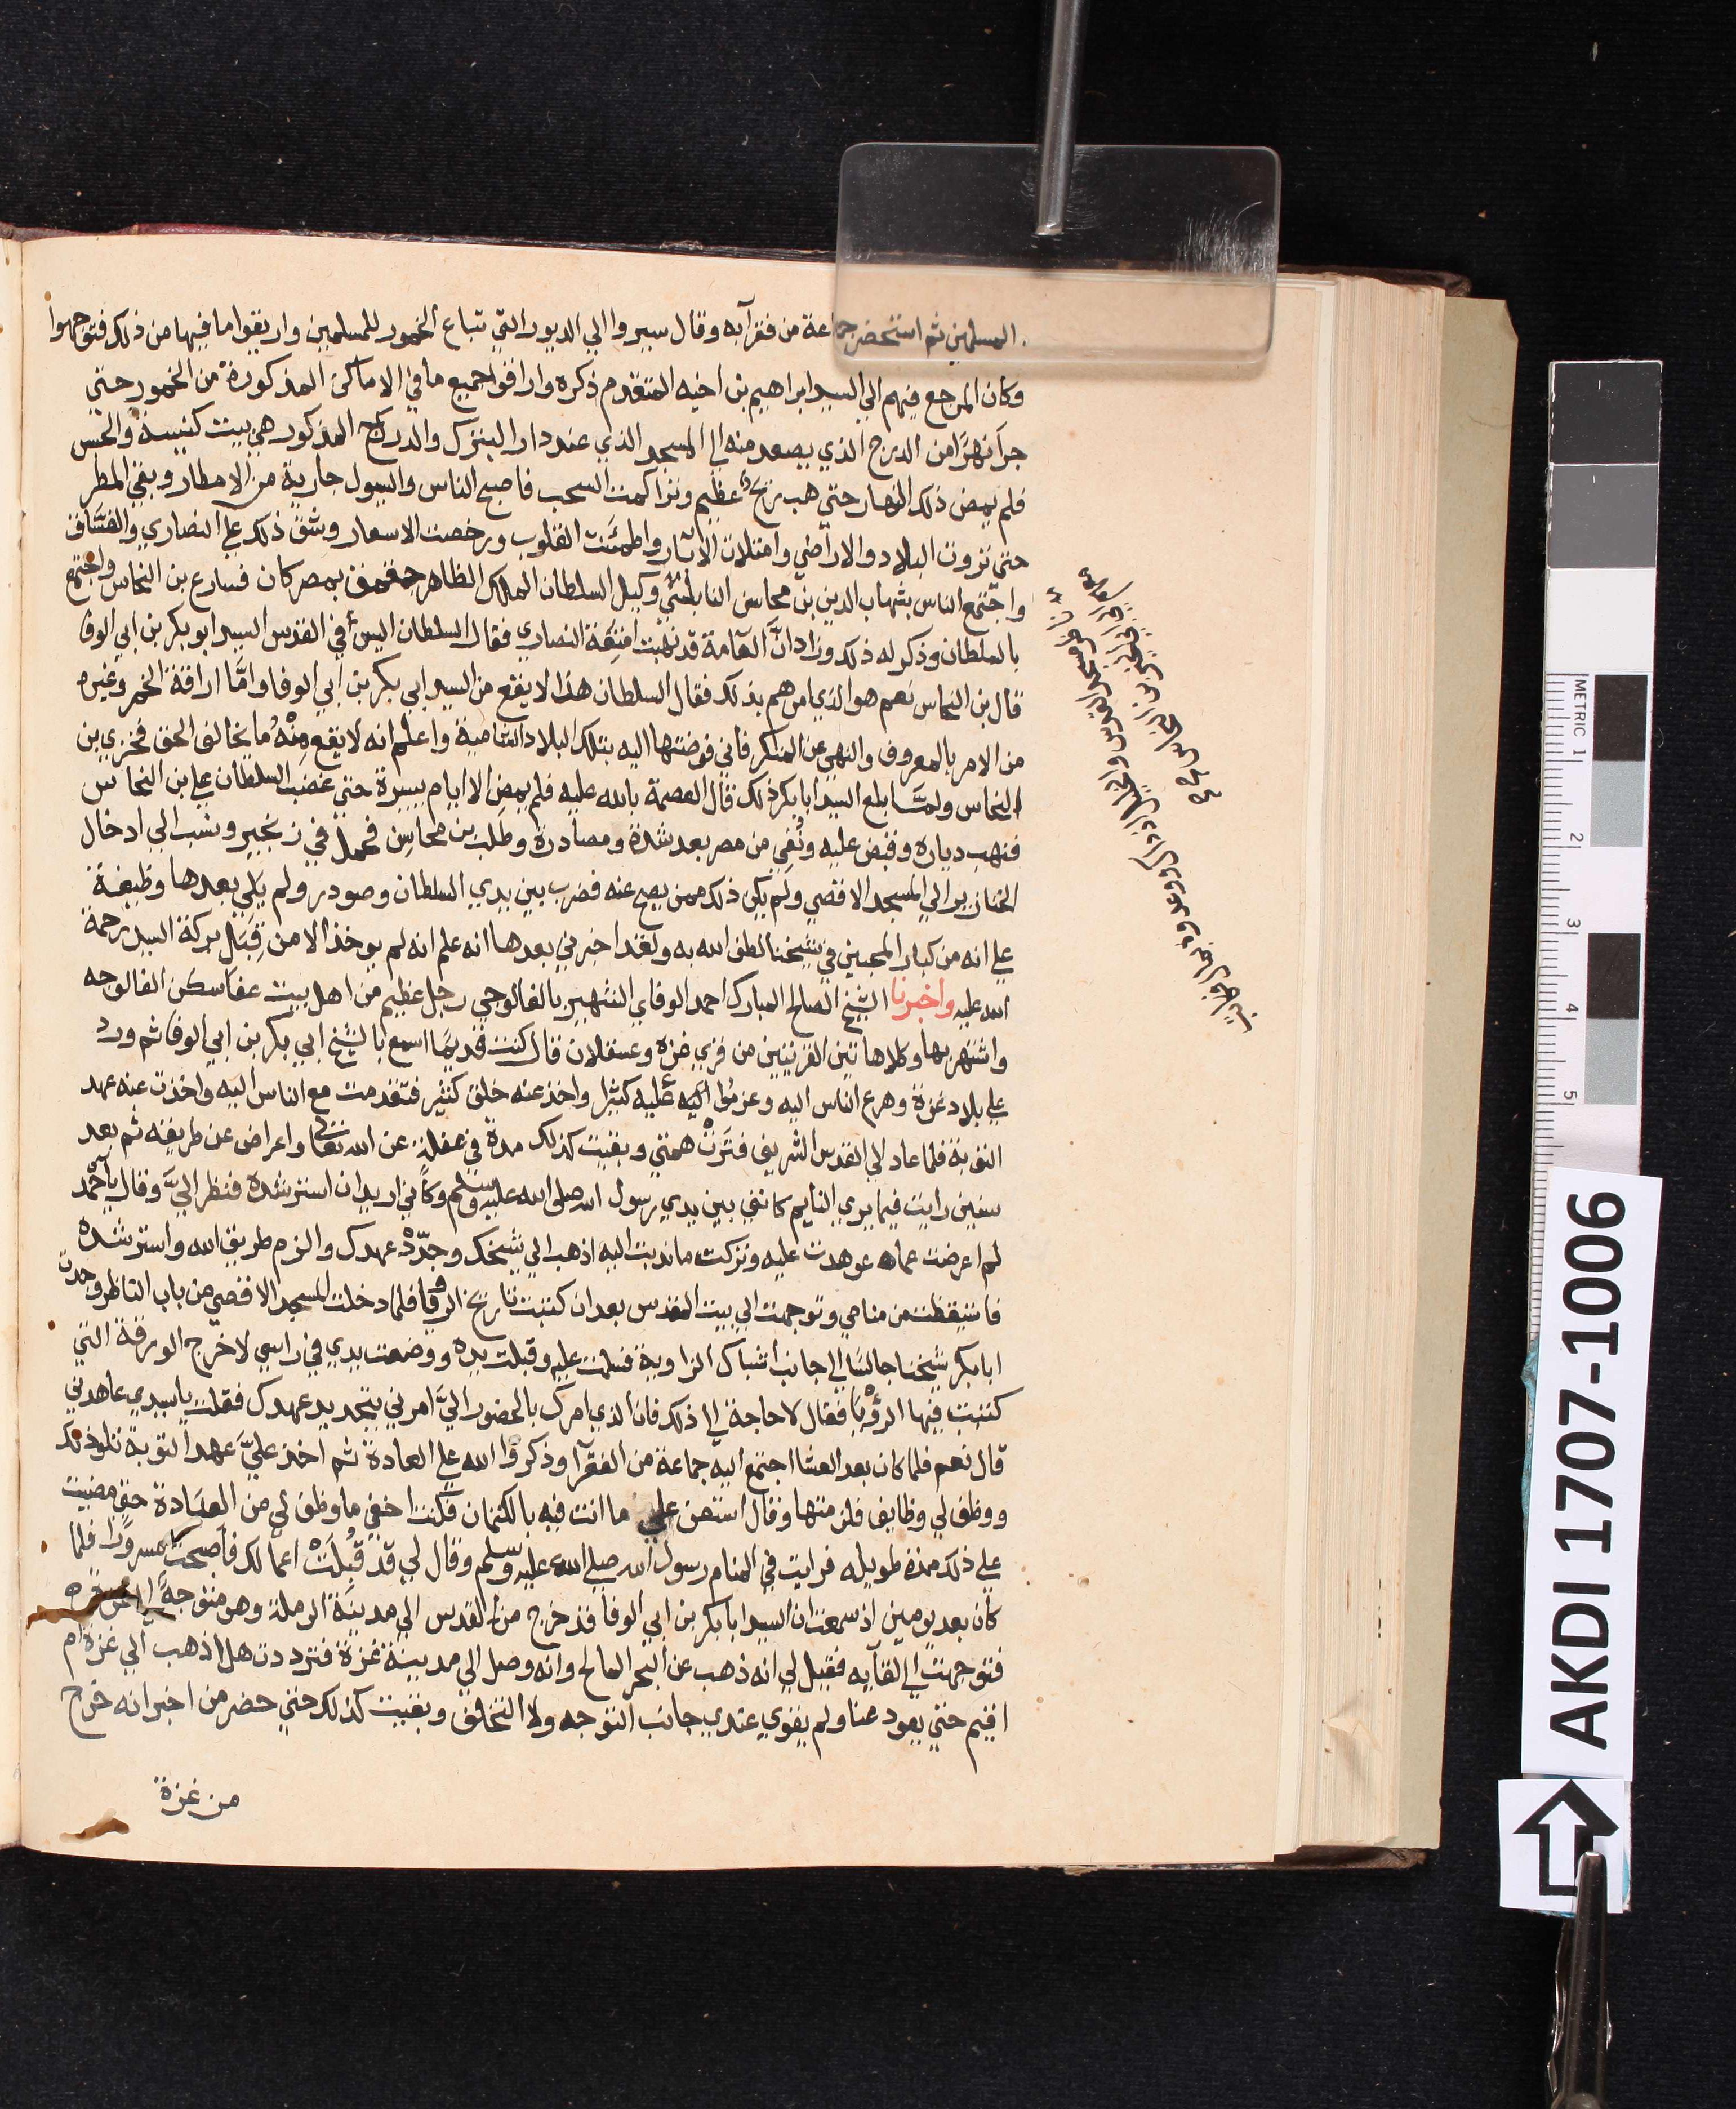 المسلمين ثم استحضر جماعة من فقرآيه وقال سيروا الي الديور التي تباع الخمور للمسلمين واريقوا ما فيها من ذلك فتوجهوا
وكان المرجع فيهم الي السيد ابراهيم بن اخيه المتقدم ذكره واراقوا جميع ما في الاماكن المذكورة من الخمور حتي
جرا نهرًا من الدرج الذي يصعد منه الي المسجد الذي عند دار البترك والدرج المذكور هي بيت كنيسة والحبس
فلم يمض ذلك النهار حتي هب ريح عظيم وتراكمت السحب فاصبح الناس والسيول جارية من الامطار وبقي المطر
حتي تروت البلاد والاراضي وامتلات الابار واطمئنت القلوب ورخصت الاسعار وشق ذلك علي النصاري والفسَّاق
واجتمع الناس بشهاب الدين بن محاسن النابلسي وكيل السلطان الملك الظاهر جقمق بمصر كان فسارع بن النحاس واجتمع
بالسلطان وذكر له ذلك وزاد انَّ العامة قد نهبت امتعة النصاري فقال السلطان اليس في القدس السيد ابو بكر بن ابي الوفا
قال بن النحاس نعم هو الذي امرهم بذلك فقال السلطان هذا لا يقع من السيد ابي بكر بن ابي الوفا وامَّا اراقة الخمر وغيره
من الامر بالمعروف والنهي عن المنكر فاني فوضتها اليه بتلك البلاد الشامية واعلم انه لا يقع مِنْهُ ما يخالف الحق فخزي بن
النحاس ولمَّا بلغ السيد ابا بكر ذلك قال العصمة بالله عليه فلم يمض الا ايام يسيرة حتي غضب السلطان علي بن النحاس
فنهب دياره وقبض عليه ونُفي من مصر بعد شدة ومصادرة وطلب بن محاسن فحمل في زنجير ونسب الي ادخال
الخنازير الي المسجد الاقصي ولم يكن ذلك ممن يصح عنه فضرب بين يدي السلطان وصودر ولم يلي بعدها وظيفة
علي انه من كبار المحبين في شيخنا لطف الله به ولقد اخبرني بعدها انه علم انه لم يوخذ الا من قِبَل بركة السيد رحمة
الله عليه واخبرنا الشيخ الصالح المبارك احمد الوفاي الشهير بالفالوجي رجل عظيم من اهل بيت عفا سكن الفالوجه
واشتهر بها وكلا هاتين القريتين من قري غزه وعسقلان قال كنت قديمًا اسمع بالشيخ ابي بكر بن ابي الوفا ثم ورد
علي بلاد غزة وهرع الناس اليه وعزموا عليه كثيرا واخذ عنه خلق كثير فتقدمت مع الناس اليه واخذت عنه عهد
التوبة فلما عاد الي القدس الشريف فترَتْ همتي وبقيت كذلك مدة في غفلة عن الله تعالي واعراض عن طريقه ثم بعد
سنين رايت فيما يري النايم كانني بين يدي رسول الله صلي الله عليه وسلم وكاني اريد ان استرشده فنظر اليَّ وقال يا احمد
لم اعرضت عما عوهدت عليه وتركت ما ندبت اليه اذهب الي شيخك وجدّدْ عهدك والزم طريق الله واسترشده
فاستيقظت من منامي وتوجهت الي بيت المقدس بعد ان كتبت تاريخ الرويا فلما دخلت المسجد الاقصي من باب الناظر وجدت
ابا بكر شيخنا جالسًا الي جانب شباك الزاوية فسلمت عليه وقبلت يده ووضعت يدي في راسي لاخرج الورقة التي
كتبت فيها الرؤيَا فقال لا حاجة الي ذلك فان الذي امرك بالحضور اليَّ امرني بتجديد عهدك فقلت يا سيدي عاهدني
قال نعم فلما كان بعد العشا اجتمع اليه جماعة من الفقرآ وذكروا الله علي العادة ثم اخذ عليَّ عهد التوبة
ووظف لي وظايف فلزمتها وقال استعن علي ما انت فيه بالكتمان فكنت اخفي ما وظف لي من العبَادة حتي مضيت
علي ذلك مدة طويله فرايت في المنام رسول الله صلي الله عليه وسلم وقال لي قد قُبِلَتْ اعمالك فاصبحت مسرورًا فلما
كان بعد يومين اذ سمعت ان السيد ابا بكر بن ابي الوفا قد خرج من القدس الي مدينة الرملة وهو متوجهًا الي
فتوجهت الي لقآيه فقيل لي انه ذهب عن البحر المالح وانه وصل الي مدينة غزة فترددت هل اذهب الي غزة ام
اقيم حتي يعود عنا ولم يقوي عندي جانب التوجه ولا التخلف وبقيت كذلك حتي حضر من اخبر انه خرج
من غزة